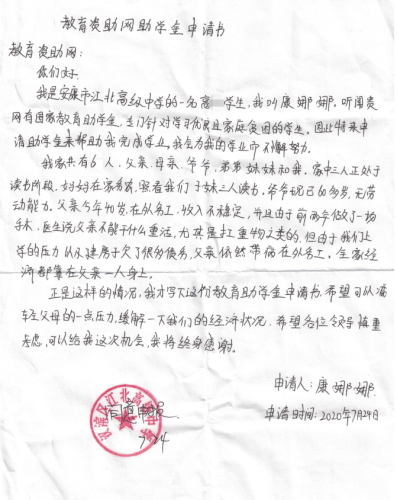 教育资助网助学金申请书
教育资助网:
你们好.
我是安康市江北高级中学的一名高一学生,我叫康娜娜.听闻贵
网有国家教育助学生,专门针对学习优良且家庭贫困的学生.因此特来申
请助学金来帮助我完成学业,我会为我的学业而不懈努力.
我家共有6人,父亲、母亲、爷爷、弟弟妹妹和我.家中三人正处于
读书阶段,妈妈在家务农,照看我们子妹三人读书,爷爷现已60多岁,无劳
动能力.父亲今年40岁,在外务工,收入不稳定,并且由于前两年做了一场
手术,医生说父亲不能干什么重活,尤其是扛重物之类的.但由于我们上
学的压力以及建房子欠了很多债务,父亲依然带病在外务工.全家经
济都靠在父亲一人身上.
正是这样的情况,我才写下这份教育助学金申请书.希望可以减
轻父母的一点压力,缓解一下我们的经济状况.希望各位领导慎重
考虑,可以给我这次机会.我将终身感谢.
申请人:康娜娜.
江北高级中学
同意申报.
7.24
申请时间:2020年7月24日